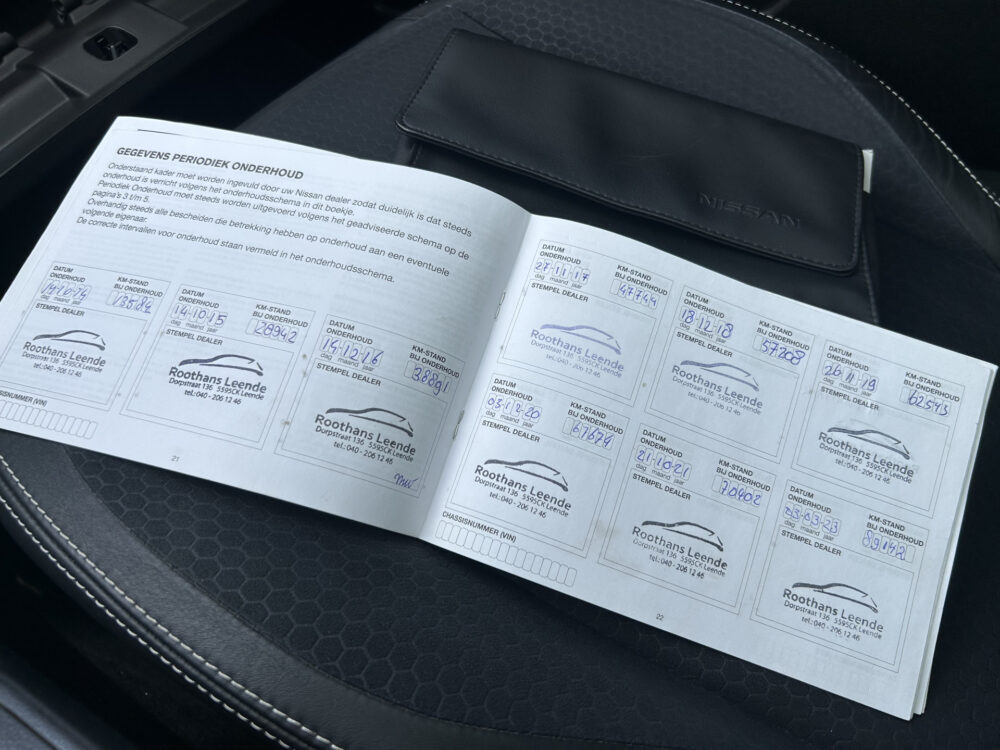 NISSAN
GEGEVENS PERIODIEK ONDERHOUD
Onderstaand kader moet worden ingevuld door uw Nissan dealer zodat duidelijk is dat steeds
onderhoud is verricht volgens het onderhoudsschema in dit boekje.
Periodiek Onderhoud moet steeds worden uitgevoerd volgens het geadviseerde schema op de
pagina's 3 t/m 5.
Overhandig steeds alle bescheiden die betrekking hebben op onderhoud aan een eventuele
volgende eigenaar.
De correcte intervallen voor onderhoud staan vermeld in het onderhoudsschema.
DATUM
ONDERHOUD
KM-STAND
BIJ ONDERHOUD
dag maand jaar
STEMPEL DEALER
Roothans Leende
Dorpstraat 136 5595CK Leende
tel.:040 - 206 12 46
DATUM
ONDERHOUD
KM-STAND
BIJ ONDERHOUD
14-10-15
28942
dag maand jaar
STEMPEL DEALER
Roothans Leende
Dorpstraat 136 5595CK Leende
tel.:040 - 206 12 46
DATUM
ONDERHOUD
KM-STAND
BIJ ONDERHOUD
19-12-16
38891
dag maand jaar
STEMPEL DEALER
Roothans Leende
Dorpstraat 136 5595CK Leende
tel.:040 - 206 12 46
(VIN)
21
DATUM
ONDERHOUD
KM-STAND
BIJ ONDERHOUD
27-11-17
47744
dag maand jaar
STEMPEL DEALER
Roothans Leende
Dorpstraat 136 5595CK Leende
tel.:040 - 206 12 46
DATUM
ONDERHOUD
KM-STAND
BIJ ONDERHOUD
18-12-18
57208
dag maand jaar
STEMPEL DEALER
Roothans Leende
Dorpstraat 136 5595CK Leende
tel.:040 - 206 12 46
DATUM
ONDERHOUD
KM-STAND
BIJ ONDERHOUD
26-11-19
62543
dag maand jaar
STEMPEL DEALER
Roothans Leende
Dorpstraat 136 5595CK Leende
tel.:040 - 206 12 46
DATUM
ONDERHOUD
KM-STAND
BIJ ONDERHOUD
03-12-20
67674
dag maand jaar
STEMPEL DEALER
Roothans Leende
Dorpstraat 136 5595CK Leende
tel.:040 - 206 12 46
DATUM
ONDERHOUD
KM-STAND
BIJ ONDERHOUD
21-10-21
70402
dag maand jaar
STEMPEL DEALER
Roothans Leende
Dorpstraat 136 5595CK Leende
tel.:040 - 206 12 46
DATUM
ONDERHOUD
KM-STAND
BIJ ONDERHOUD
03-03-23
89142
dag maand jaar
STEMPEL DEALER
Roothans Leende
Dorpstraat 136 5595CK Leende
tel.:040 - 206 12 46
CHASSISNUMMER (VIN)
22